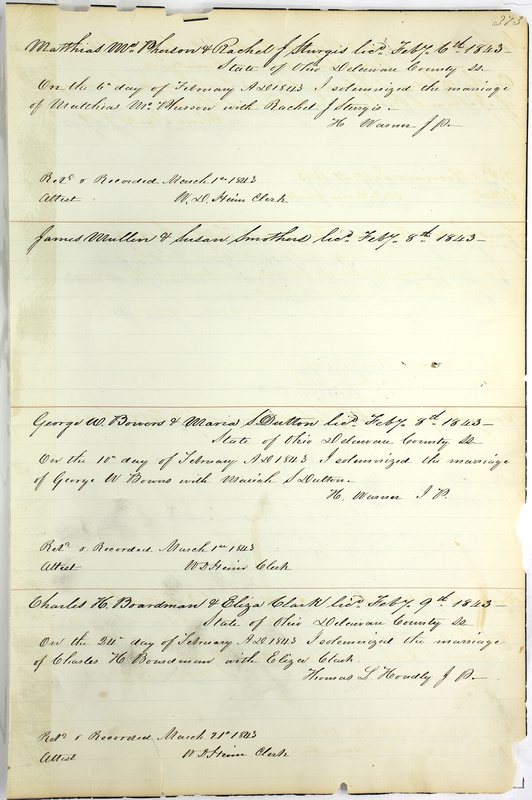 373
Matthias Mc Pherson & Rachel J Sturgis licd. Feby. 6th 1843
State of Ohio Delaware County ss
On the 6th day of February AD 1843 I solemnized the marriage
of Matthias Mc Pherson with Rachel J Sturgis.
H Warner J P.
Retd & Recorded March 1st 1843
Attest W. D. Heim Clerk
James Mullen & Susan Smothers licd. Feby. 8th 1843
George W. Bowers & Maria S. Dutton licd. Feby. 8th 1843
State of Ohio Delaware County ss
On the 10th day of February AD 1843 I solemnized the marriage
of George W Bowers with Mariah S Dutton.
H. Warner J P.
Retd & Recorded March 1st 1843
Attest W D Heim Clerk
Charles H. Boardman & Eliza Clark licd. Feby. 9th 1843
State of Ohio Delaware County ss
On the 24th day of February AD 1843 I solemnized the marriage
of Charles H Boardman with Eliza Clark.
Thomas L Hoadly J P.
Retd & Recorded March 21st 1843
Attest W D Heim Clerk